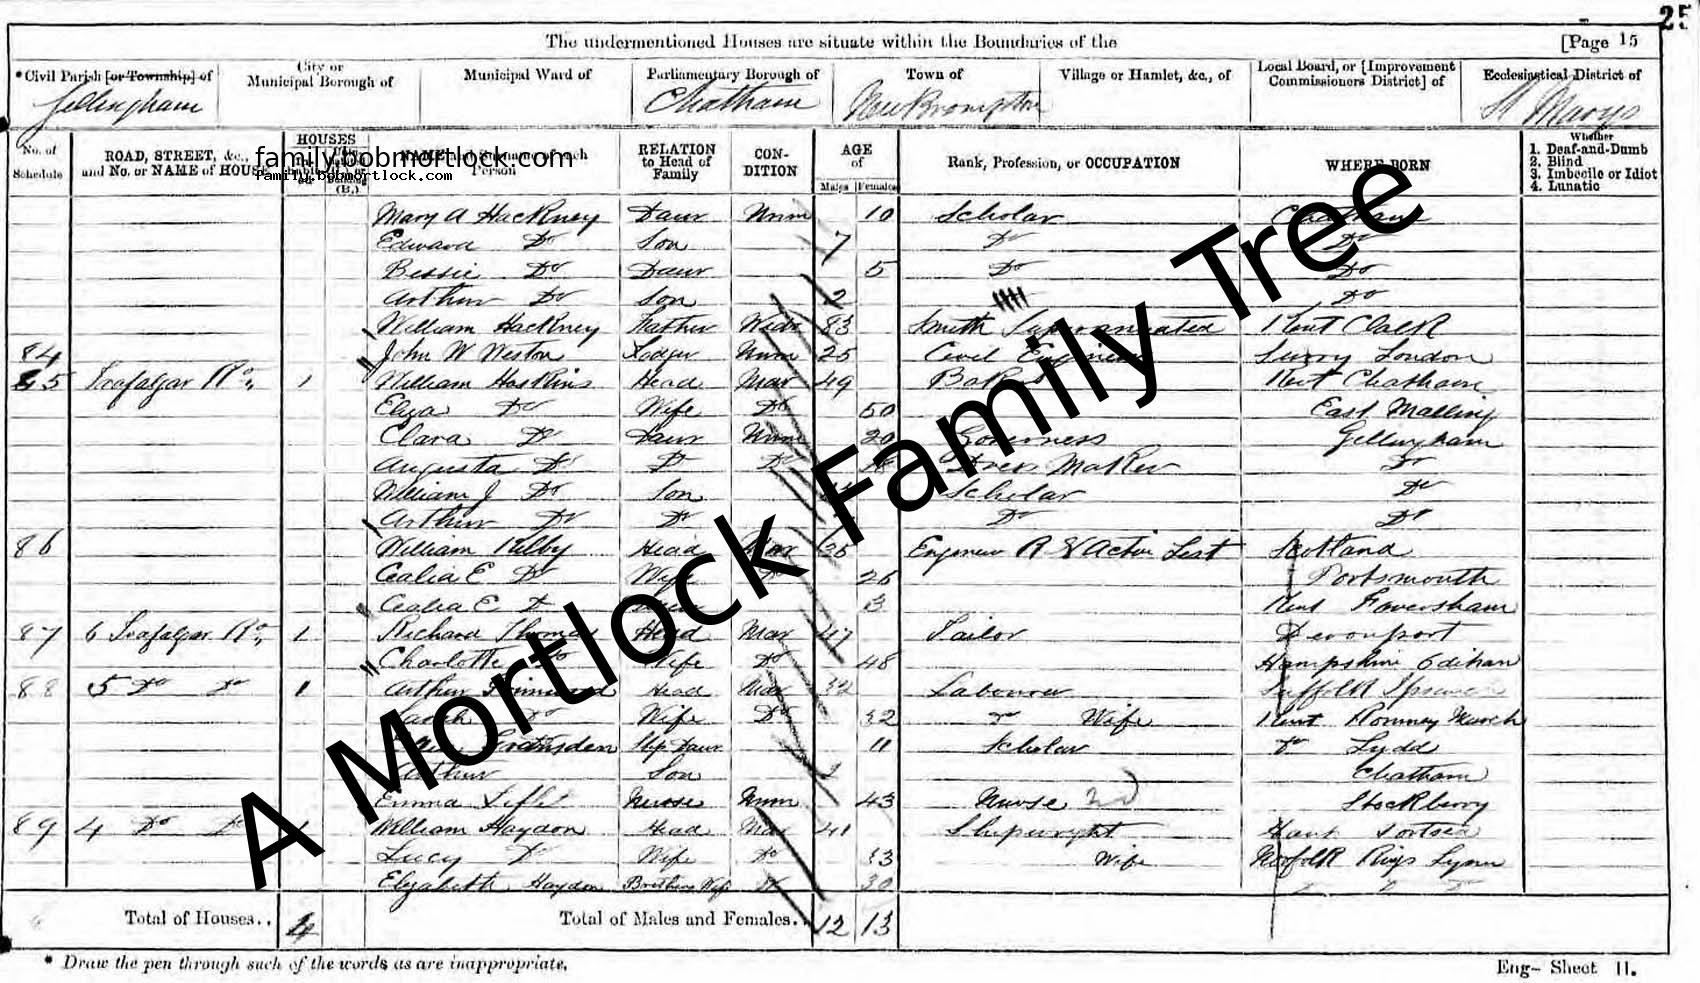 25
The undermentioned Houses are situate within the Boundaries of the [Page 15
*Civil Parish [or Township] of City or Municipal Borough of Municipal Ward of Parliamentary Borough of Town of Village or Hamlet, &c., of Local Board, or [Improvement Commissioners District] of Ecclesiastical District of
Gillingham Chatham New Brompton St Marys
No. of Schedule ROAD, STREET, &c., and No. or NAME of HOUSE HOUSES NAME and Surname of each Person RELATION to Head of Family CON- DITION AGE of Males Females Rank, Profession, or OCCUPATION WHERE BORN Whether 1. Deaf-and-Dumb 2. Blind 3. Imbecile or Idiot 4. Lunatic
family.bobmortlock.com
family.bobmortlock.com
Mary A Hackney Daur Unm 10 Scholar Chatham
Edward Do Son 7 Do Do
Bessie Do Daur 5 Do Do
Arthur Do Son 2 Do
William Hackney Father Widr 83 Smith Superannuated Kent Chalk
84 John W Weston Lodger Unm 25 Civil Engineer Surry London
85 Trafalgar Rd 1 William Hoskins Head Mar 49 Baker Kent Chatham
Eliza Do Wife Do 50 East Malling
Clara Do Daur Unm 20 Governess Gillingham
Augusta Do Do Do Dress Maker Do
William J Do Son Scholar Do
Arthur Do Do Do Do
86 William Kilby Head Mar Engineer R N Active List Scotland
Cealia E Do Wife Do 26 Portsmouth
Cealia E D 3 Kent Faversham
87 6 Trafalgar Rd 1 Richard Thomas Head Mar 47 Tailor Devonport
Charlotte Do Wife Do 48 Hampshire Odiham
88 5 Do Do 1 Arthur Head Mar 32 Labourer Suffolk Ipswich
Sarah Do Wife Do 32 Do Wife Kent Romney Marsh
Step Daur 11 Scholar Do Lydd
Arthur Son 2 Chatham
Emma Nurse Unm 43 Nurse Stockberry
89 4 Do Do 1 William Haydon Head Mar 41 Shipwright Hant Portsea
Lucy Do Wife Do 33 Wife Norfolk Kings Lynn
Elizabeth Haydon Brothers Wife Do 30
A Mortlock Family Tree
Total of Houses.. 4 Total of Males and Females.. 12 13
* Draw the pen through such of the words as are inappropriate.
Eng- Sheet H.